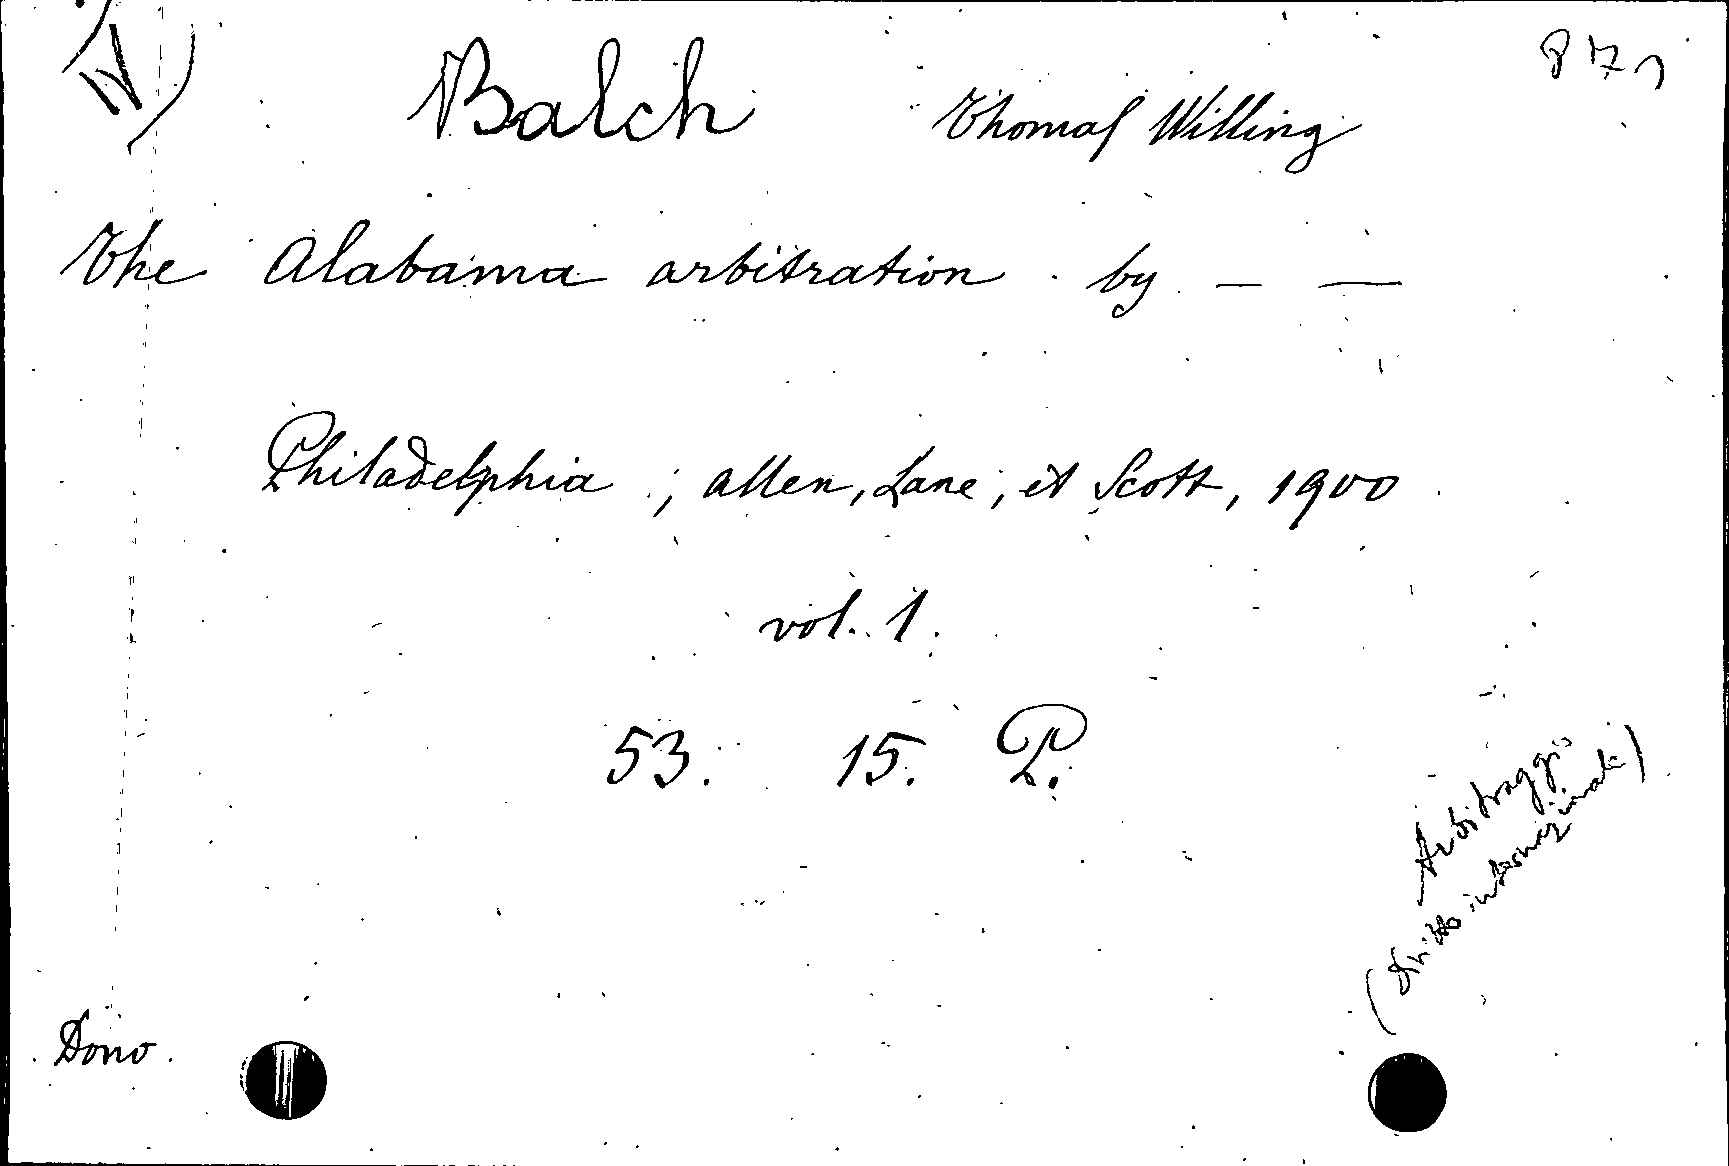 (N)
Balch Thomas Willing
The Alabama arbitration by — —
Philadelphia ; Allen, Lane, et Scott, 1900
vol. 1.
53. 15. P.
Arbitraggio
(Diritto internazionale)
Dono.